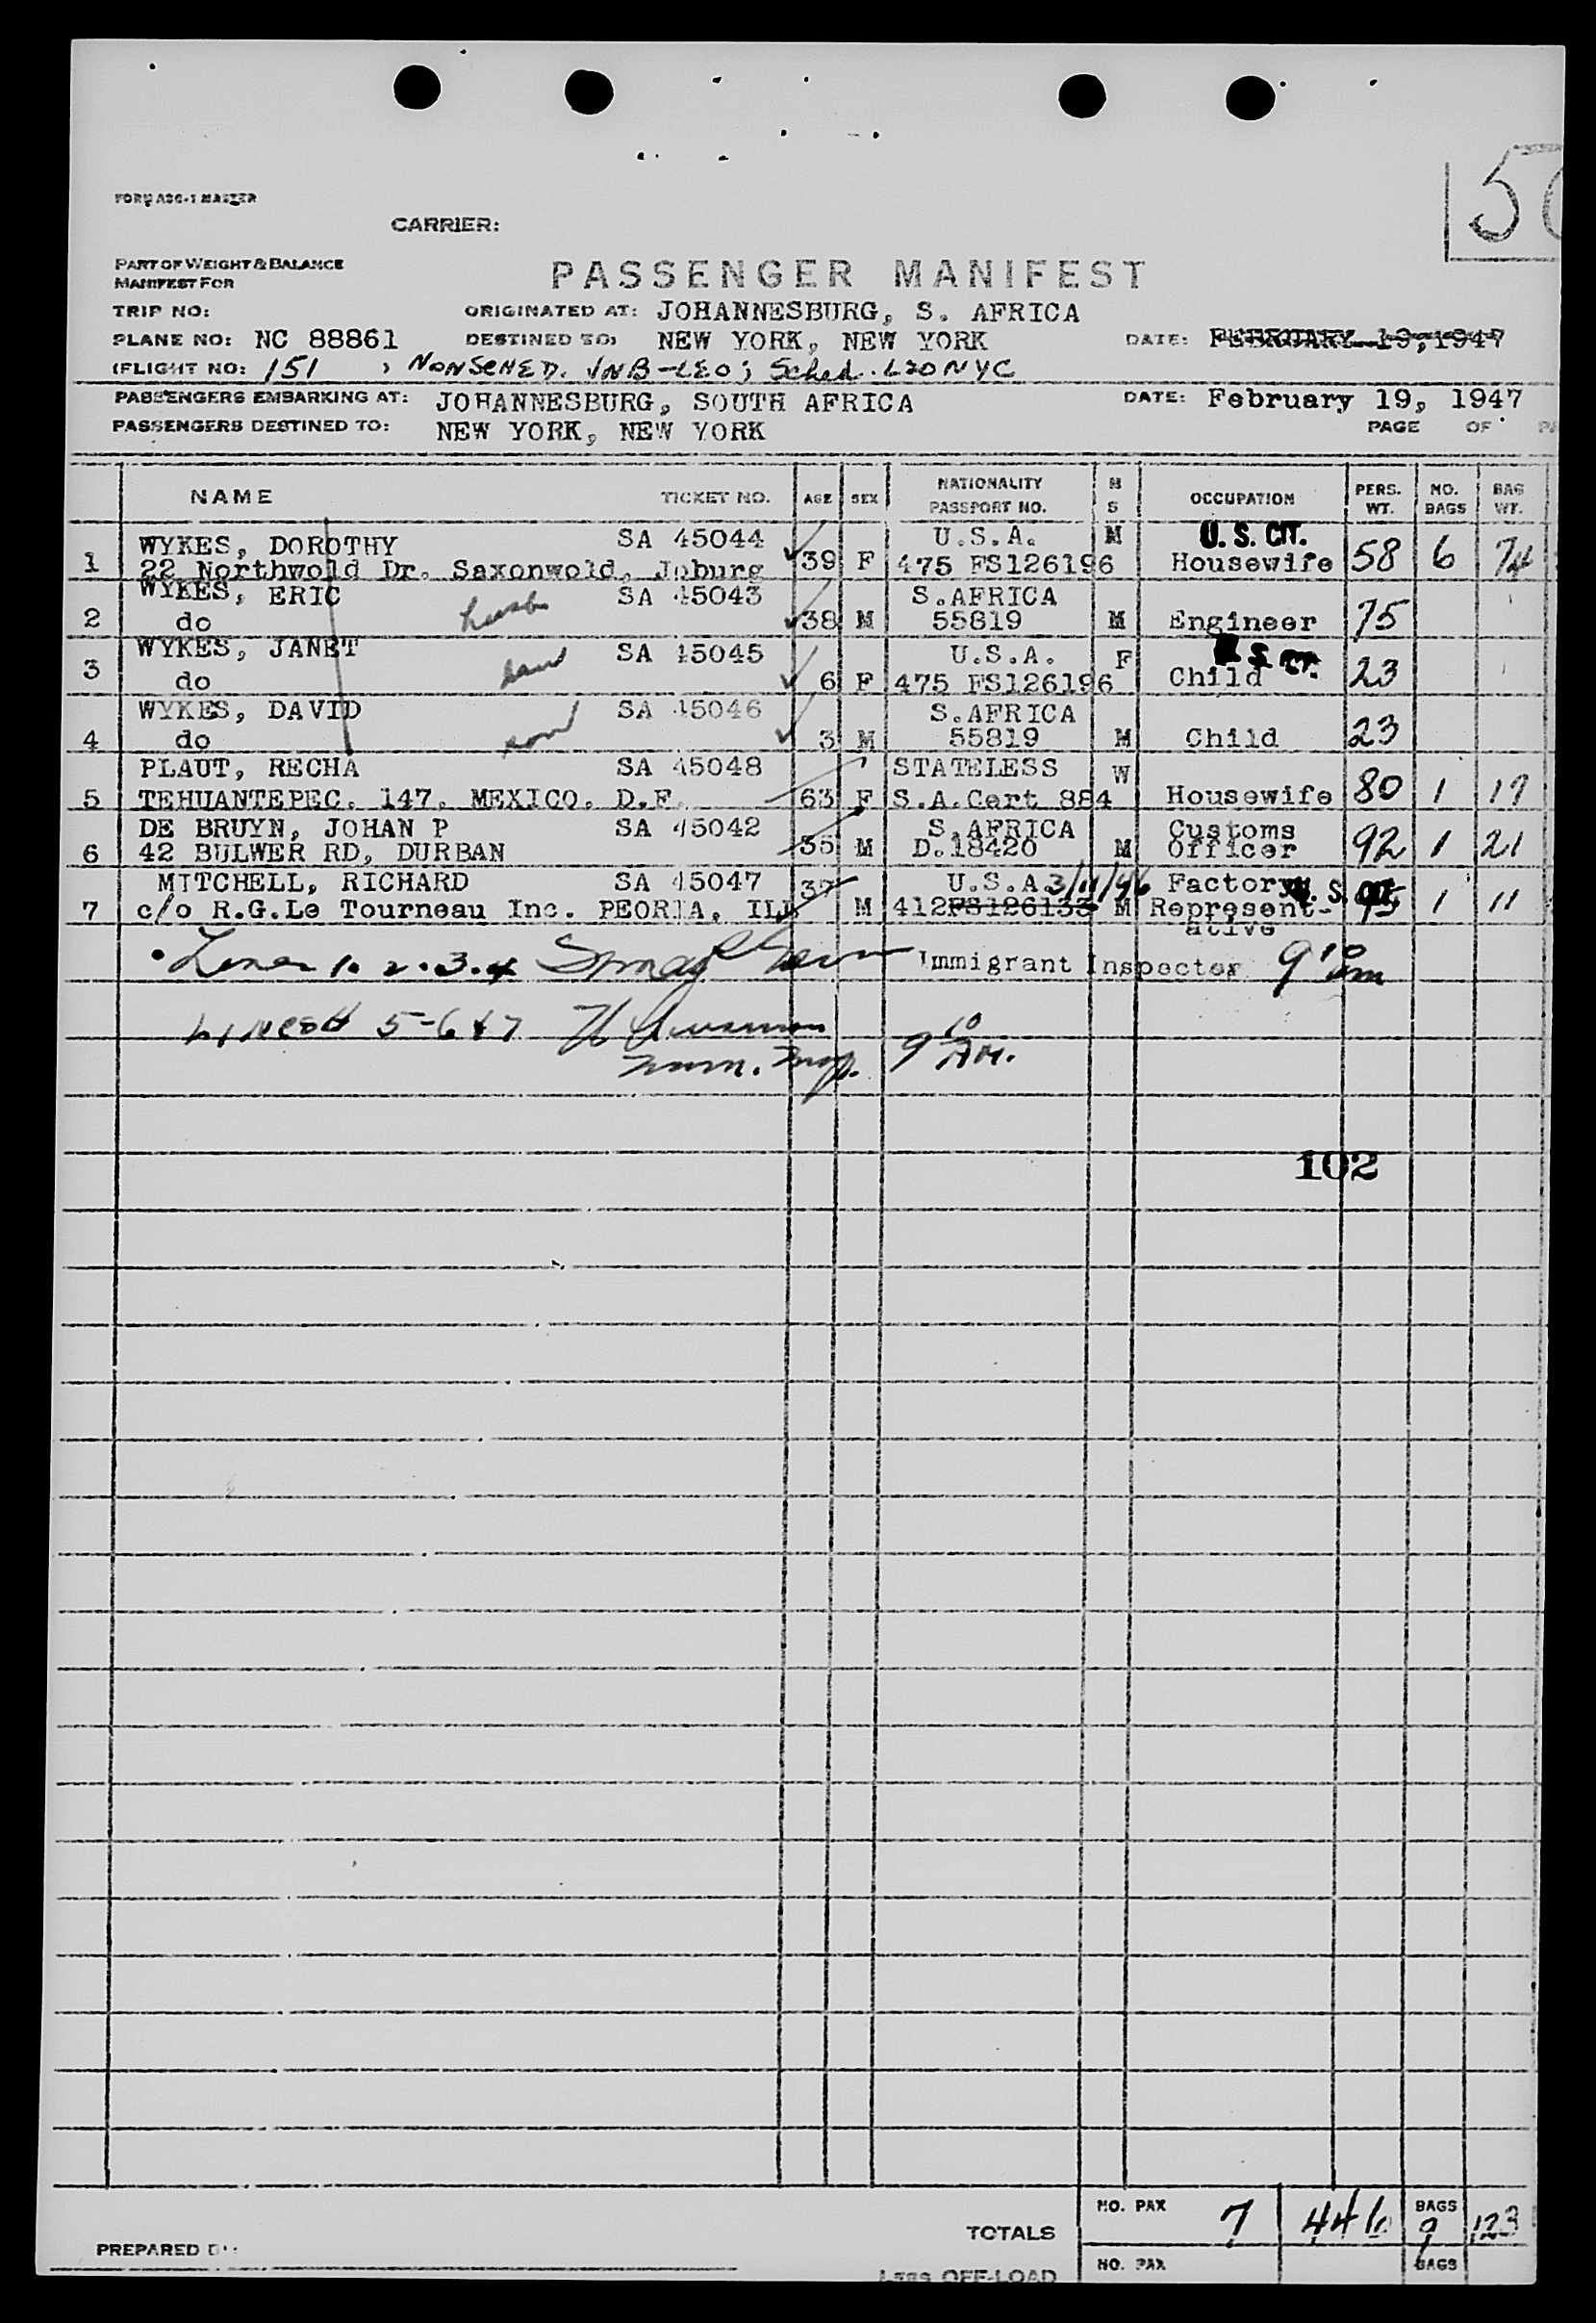 FORM ASC-1 MASTER
CARRIER:
PART OF WEIGHT & BALANCE
MANIFEST FOR
PASSENGER MANIFEST
TRIP NO: ORIGINATED AT: JOHANNESBURG, S. AFRICA
PLANE NO: NC 88861 DESTINED TO: NEW YORK, NEW YORK DATE: FEBRUARY 19, 1947
(FLIGHT NO: 151 , NONSCHED. JNB-LEO; Sched. LEO NYC
PASSENGERS EMBARKING AT: JOHANNESBURG, SOUTH AFRICA DATE: February 19, 1947
PASSENGERS DESTINED TO: NEW YORK, NEW YORK PAGE OF
NAME TICKET NO. AGE SEX NATIONALITY PASSPORT NO. M S OCCUPATION PERS. WT. NO. BAGS BAG WT.
WYKES, DOROTHY SA 45044 U.S.A. M U. S. CIT.
1 22 Northwold Dr. Saxonwold, Joburg 39 F 475 FS126196 Housewife 58 6 74
WYKES, ERIC SA 45043 S.AFRICA
2 do husb 38 M 55819 M Engineer 75
WYKES, JANET SA 45045 U.S.A. F U S CIT.
3 do 6 F 475 FS126196 Child 23
WYKES, DAVID SA 45046 S.AFRICA
4 do son 3 M 55819 M Child 23
PLAUT, RECHA SA 45048 STATELESS W
5 TEHUANTEPEC. 147. MEXICO. D.F. 63 F S.A.Cert 884 Housewife 80 1 17
DE BRUYN, JOHAN P SA 45042 S.AFRICA Customs
6 42 BULWER RD, DURBAN 35 M D.18420 M Officer 92 1 21
MITCHELL, RICHARD SA 45047 37 U.S.A. 3/11/46 Factory U. S. CIT.
7 c/o R.G.Le Tourneau Inc. PEORIA, ILL M 412FS126133 M Represent- 95 1 11
ative
Lines 1. 2. 3. 4 Immigrant Inspector 9 10 am
Lines 5-6 & 7 Imm. Insp. 9 10 AM.
102
NO. PAX 7 446 BAGS 9 123
TOTALS
PREPARED
NO. PAX BAGS
Less OFF-LOAD